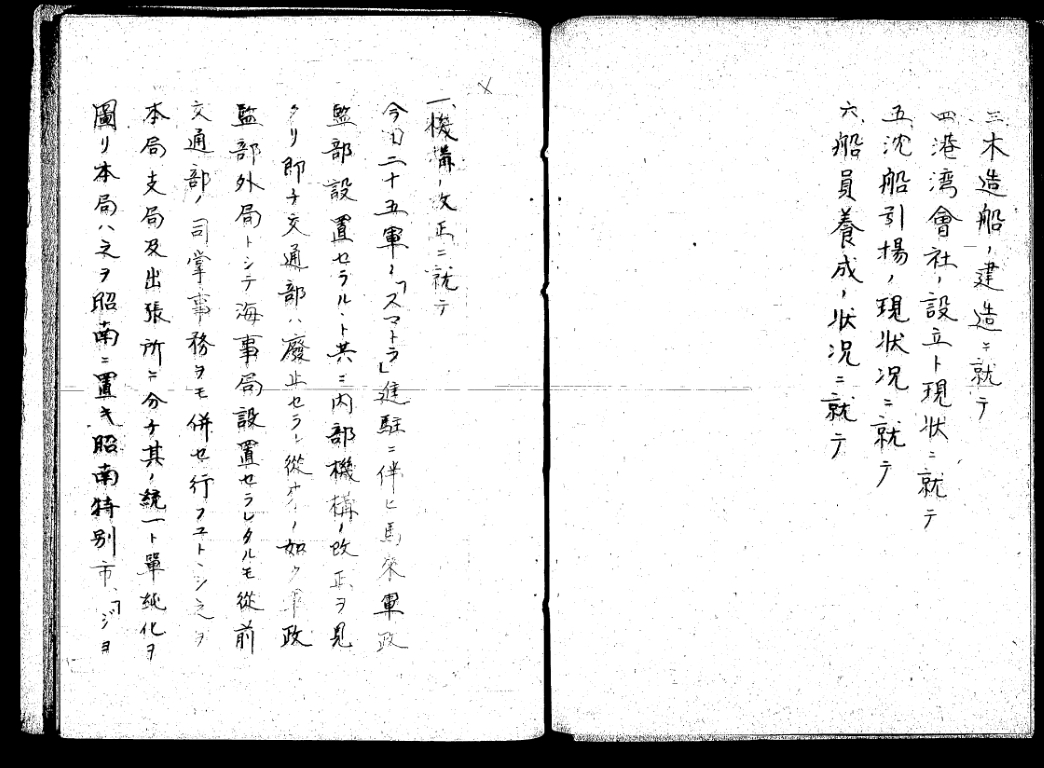 三、木造船ノ建造ニ就テ
四、港湾會社ノ設立ト現状ニ就テ
五、沈船引揚ノ現状況ニ就テ
六、船員養成ノ状況ニ就テ
一、機構ノ改正ニ就テ
今回二十五軍ノ「スマトラ」進駐ニ伴ヒ馬來軍政
監部設置セラルヽト共ニ内部機構ノ改正ヲ見
タリ即チ交通部ハ廢止セラレ從来ノ如ク軍政
監部外局トシテ海事局設置セラレタルモ從前
交通部ノ司掌事務ヲモ併セ行フコトヽシ之ヲ
本局支局及出張所ニ分チ其ノ統一ト單純化ヲ
圖リ本局ハ之ヲ昭南ニ置キ昭南特別市、「ジヨ